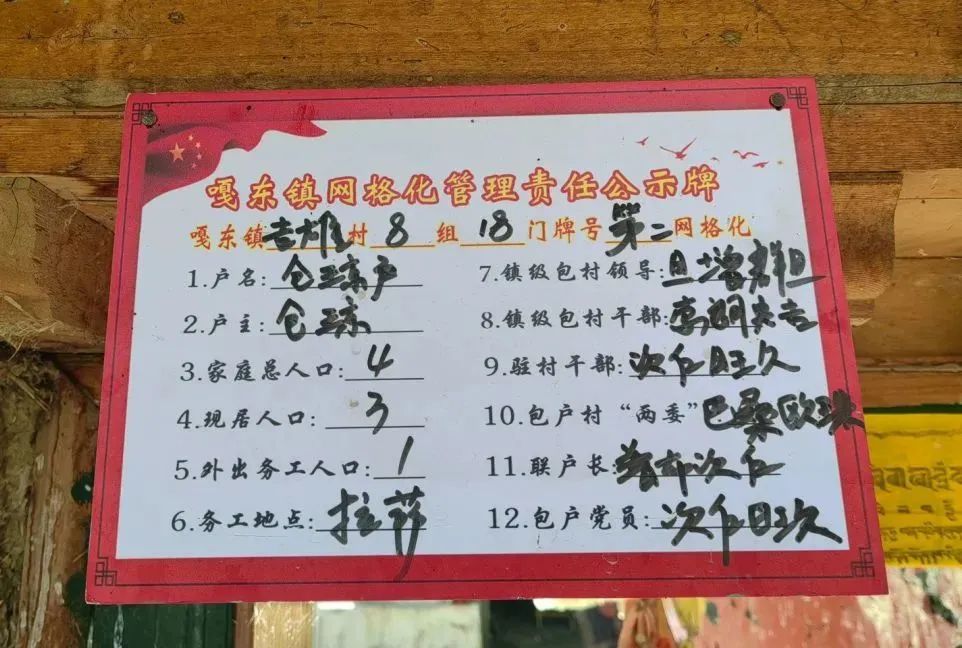 嘎东镇网格化管理责任公示牌
嘎东镇吉雄村8组18门牌号第二网格化
1.户名:仓琼户
2.户主:仓琼
3.家庭总人口:4
4.现居人口:3
5.外出务工人口:1
6.务工地点:拉萨
7.镇级包村领导:旦增群旦
8.镇级包村干部:
9.驻村干部:次仁旺久
10.包户村“两委”巴桑欧珠
11.联户长:次仁
12.包户党员:次仁